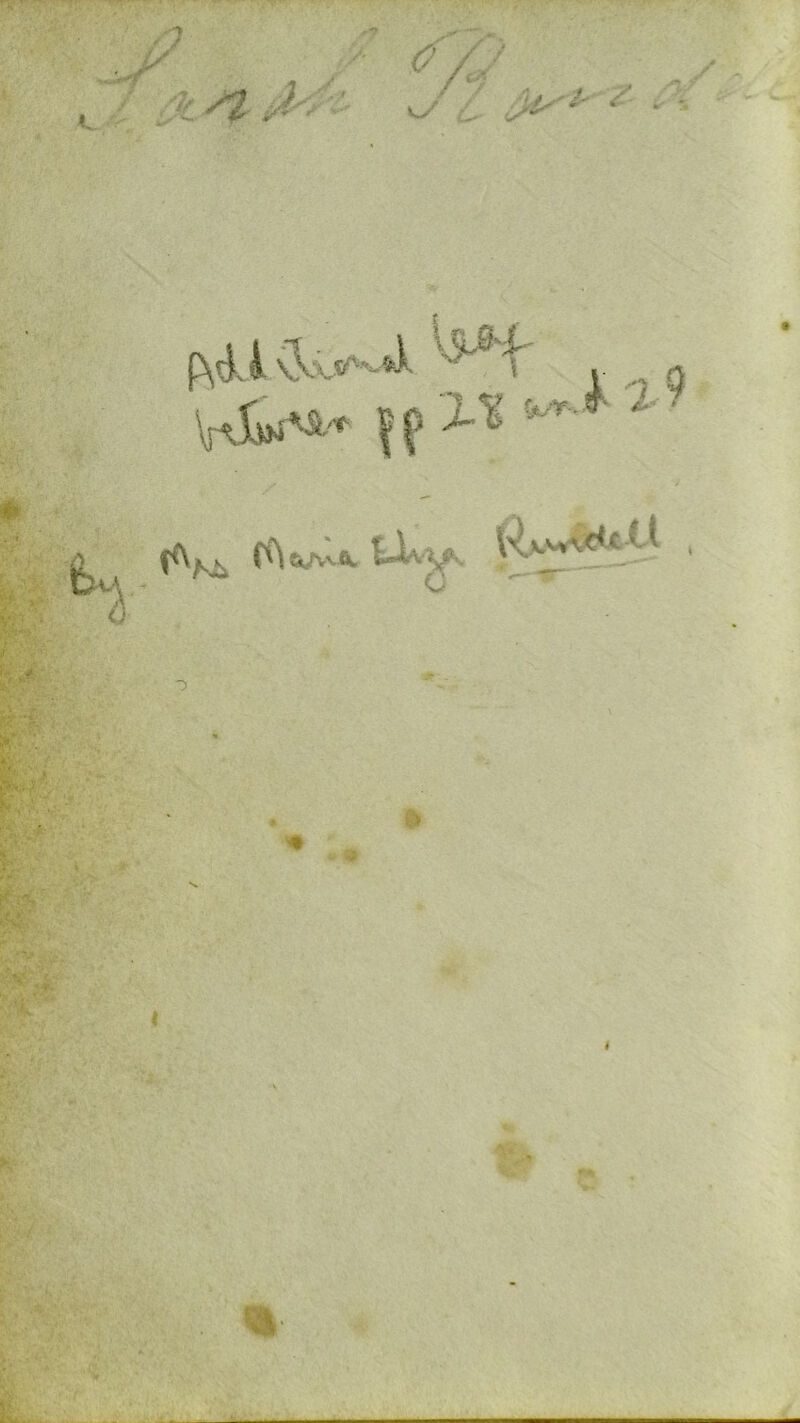 Sarah
Additional leaf
between pp 28 and 29
By Mrs Maria Eliza Rundell